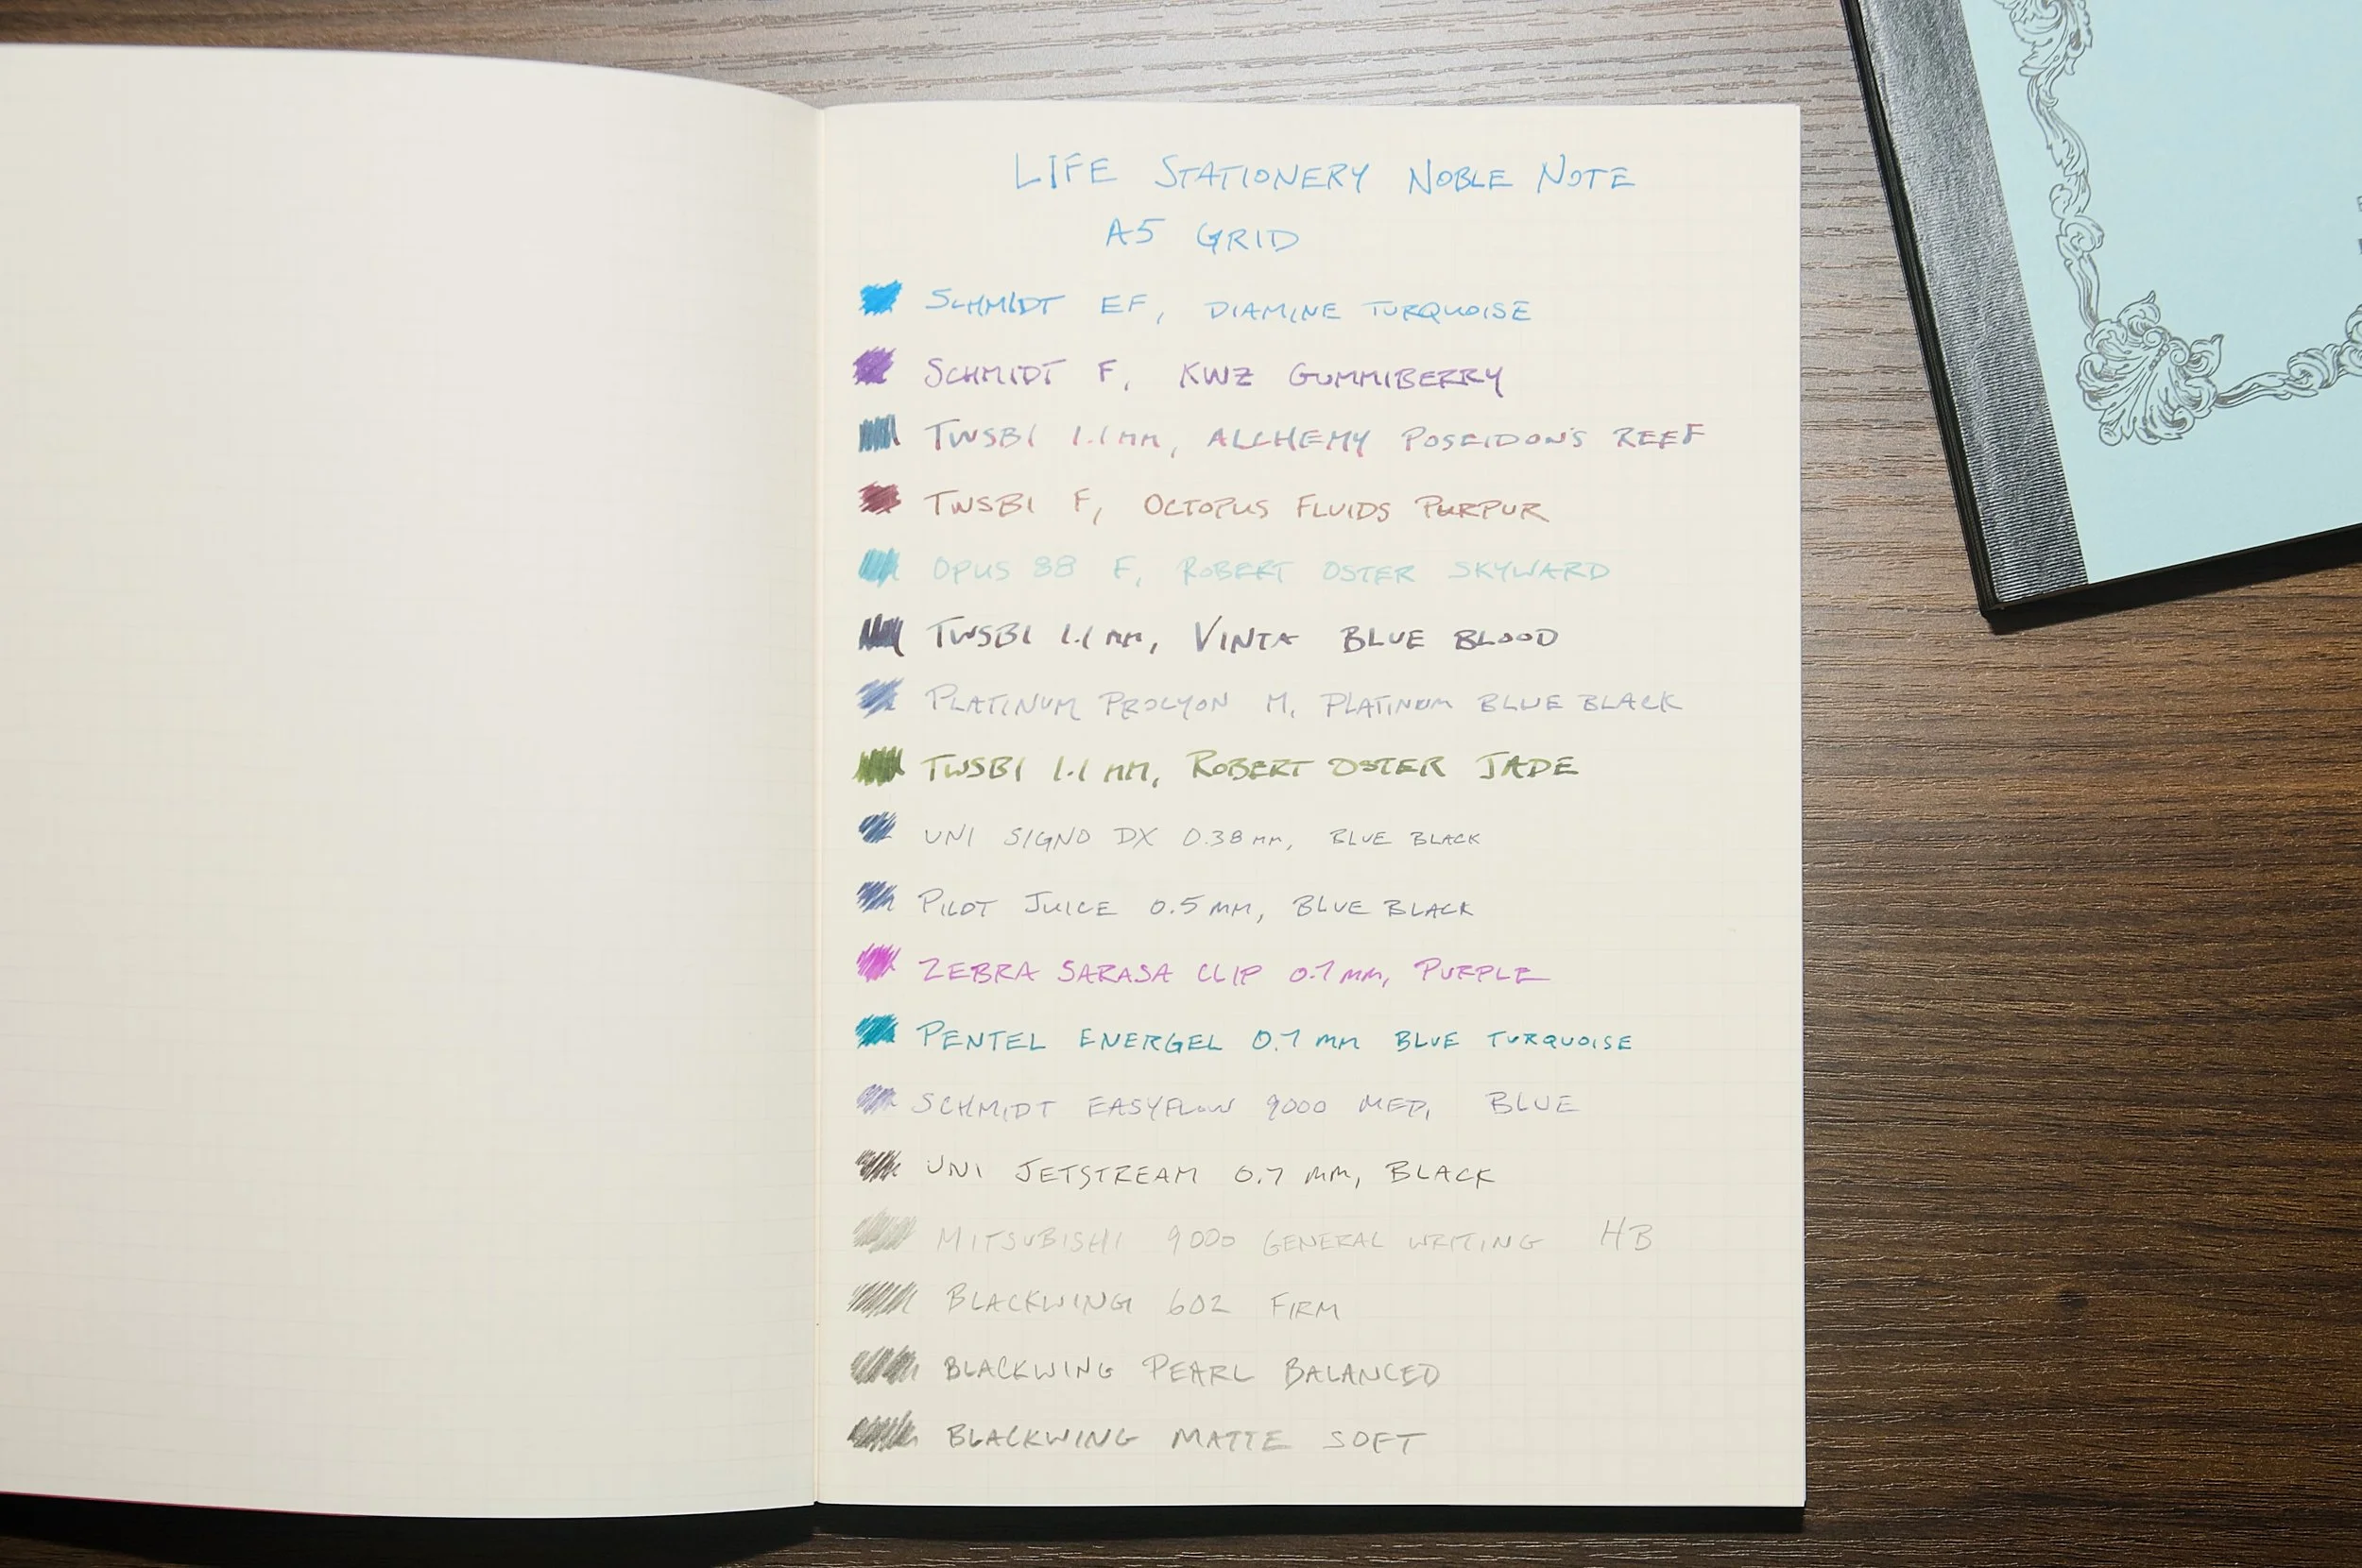 LIFE STATIONERY NOBLE NOTE
A5 GRID
SCHMIDT EF, DIAMINE TURQUOISE
SCHMIDT F, KWZ GUMMIBERRY
TWSBI 1.1 mm, ALCHEMY POSEIDON'S REEF
TWSBI F, OCTOPUS FLUIDS PURPUR
OPUS 88 F, ROBERT OSTER SKYWARD
TWSBI 1.1 mm, VINTA BLUE BLOOD
PLATINUM PROCYON M, PLATINUM BLUE BLACK
TWSBI 1.1 mm, ROBERT OSTER JADE
UNI SIGNO DX 0.38 mm, BLUE BLACK
PILOT JUICE 0.5 mm, BLUE BLACK
ZEBRA SARASA CLIP 0.7 mm, PURPLE
PENTEL ENERGEL 0.7 mm BLUE TURQUOISE
SCHMIDT EASYFLOW 9000 MED, BLUE
UNI JETSTREAM 0.7 mm, BLACK
MITSUBISHI 9000 GENERAL WRITING HB
BLACKWING 602 FIRM
BLACKWING PEARL BALANCED
BLACKWING MATTE SOFT